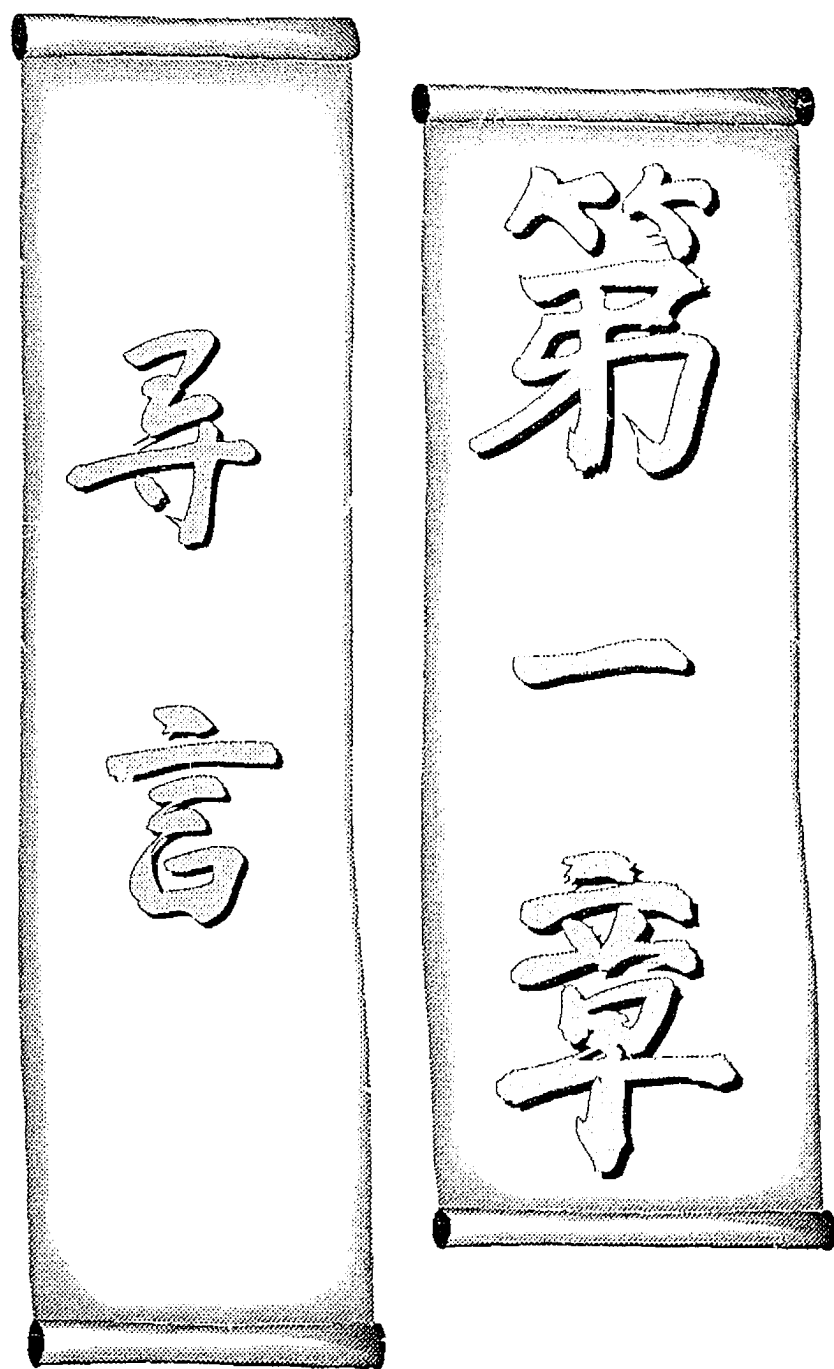 第一章
寻言